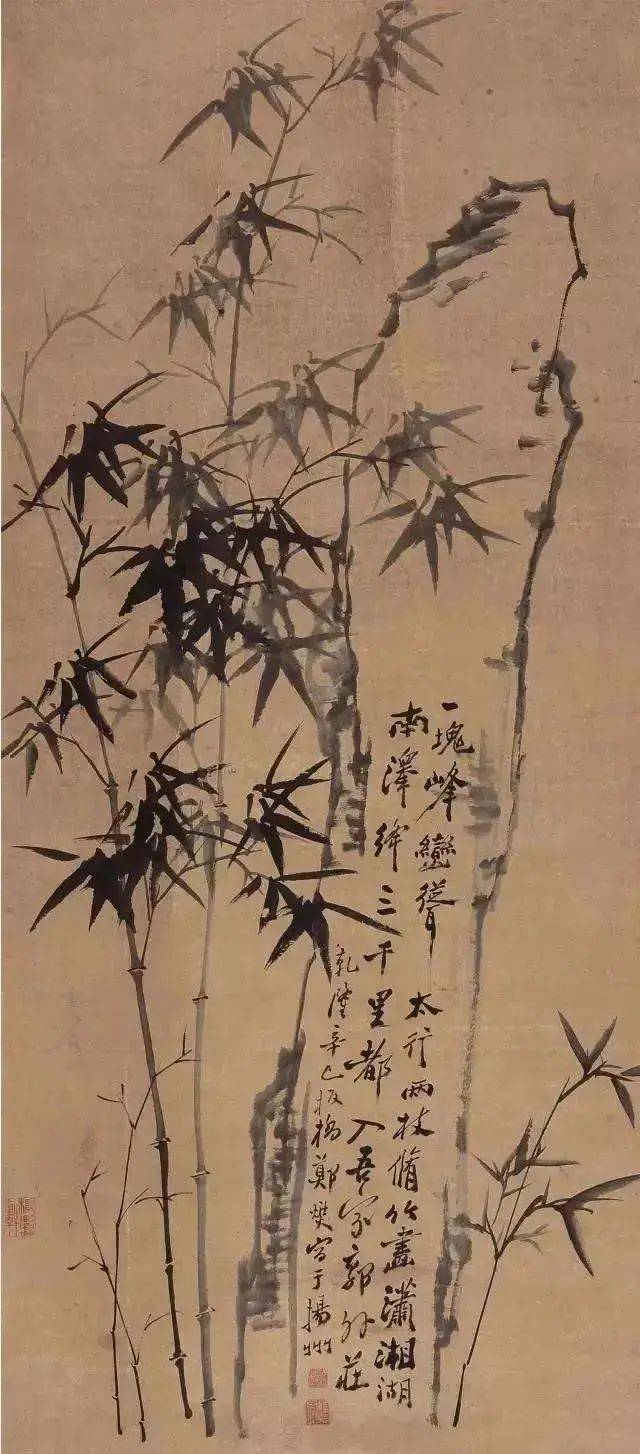 一塊峰巒聳太行兩枝脩竹畫瀟湘湖
南澤絳三千里都入吾家郭外莊
乾隆辛巳板橋鄭燮寫于揚州